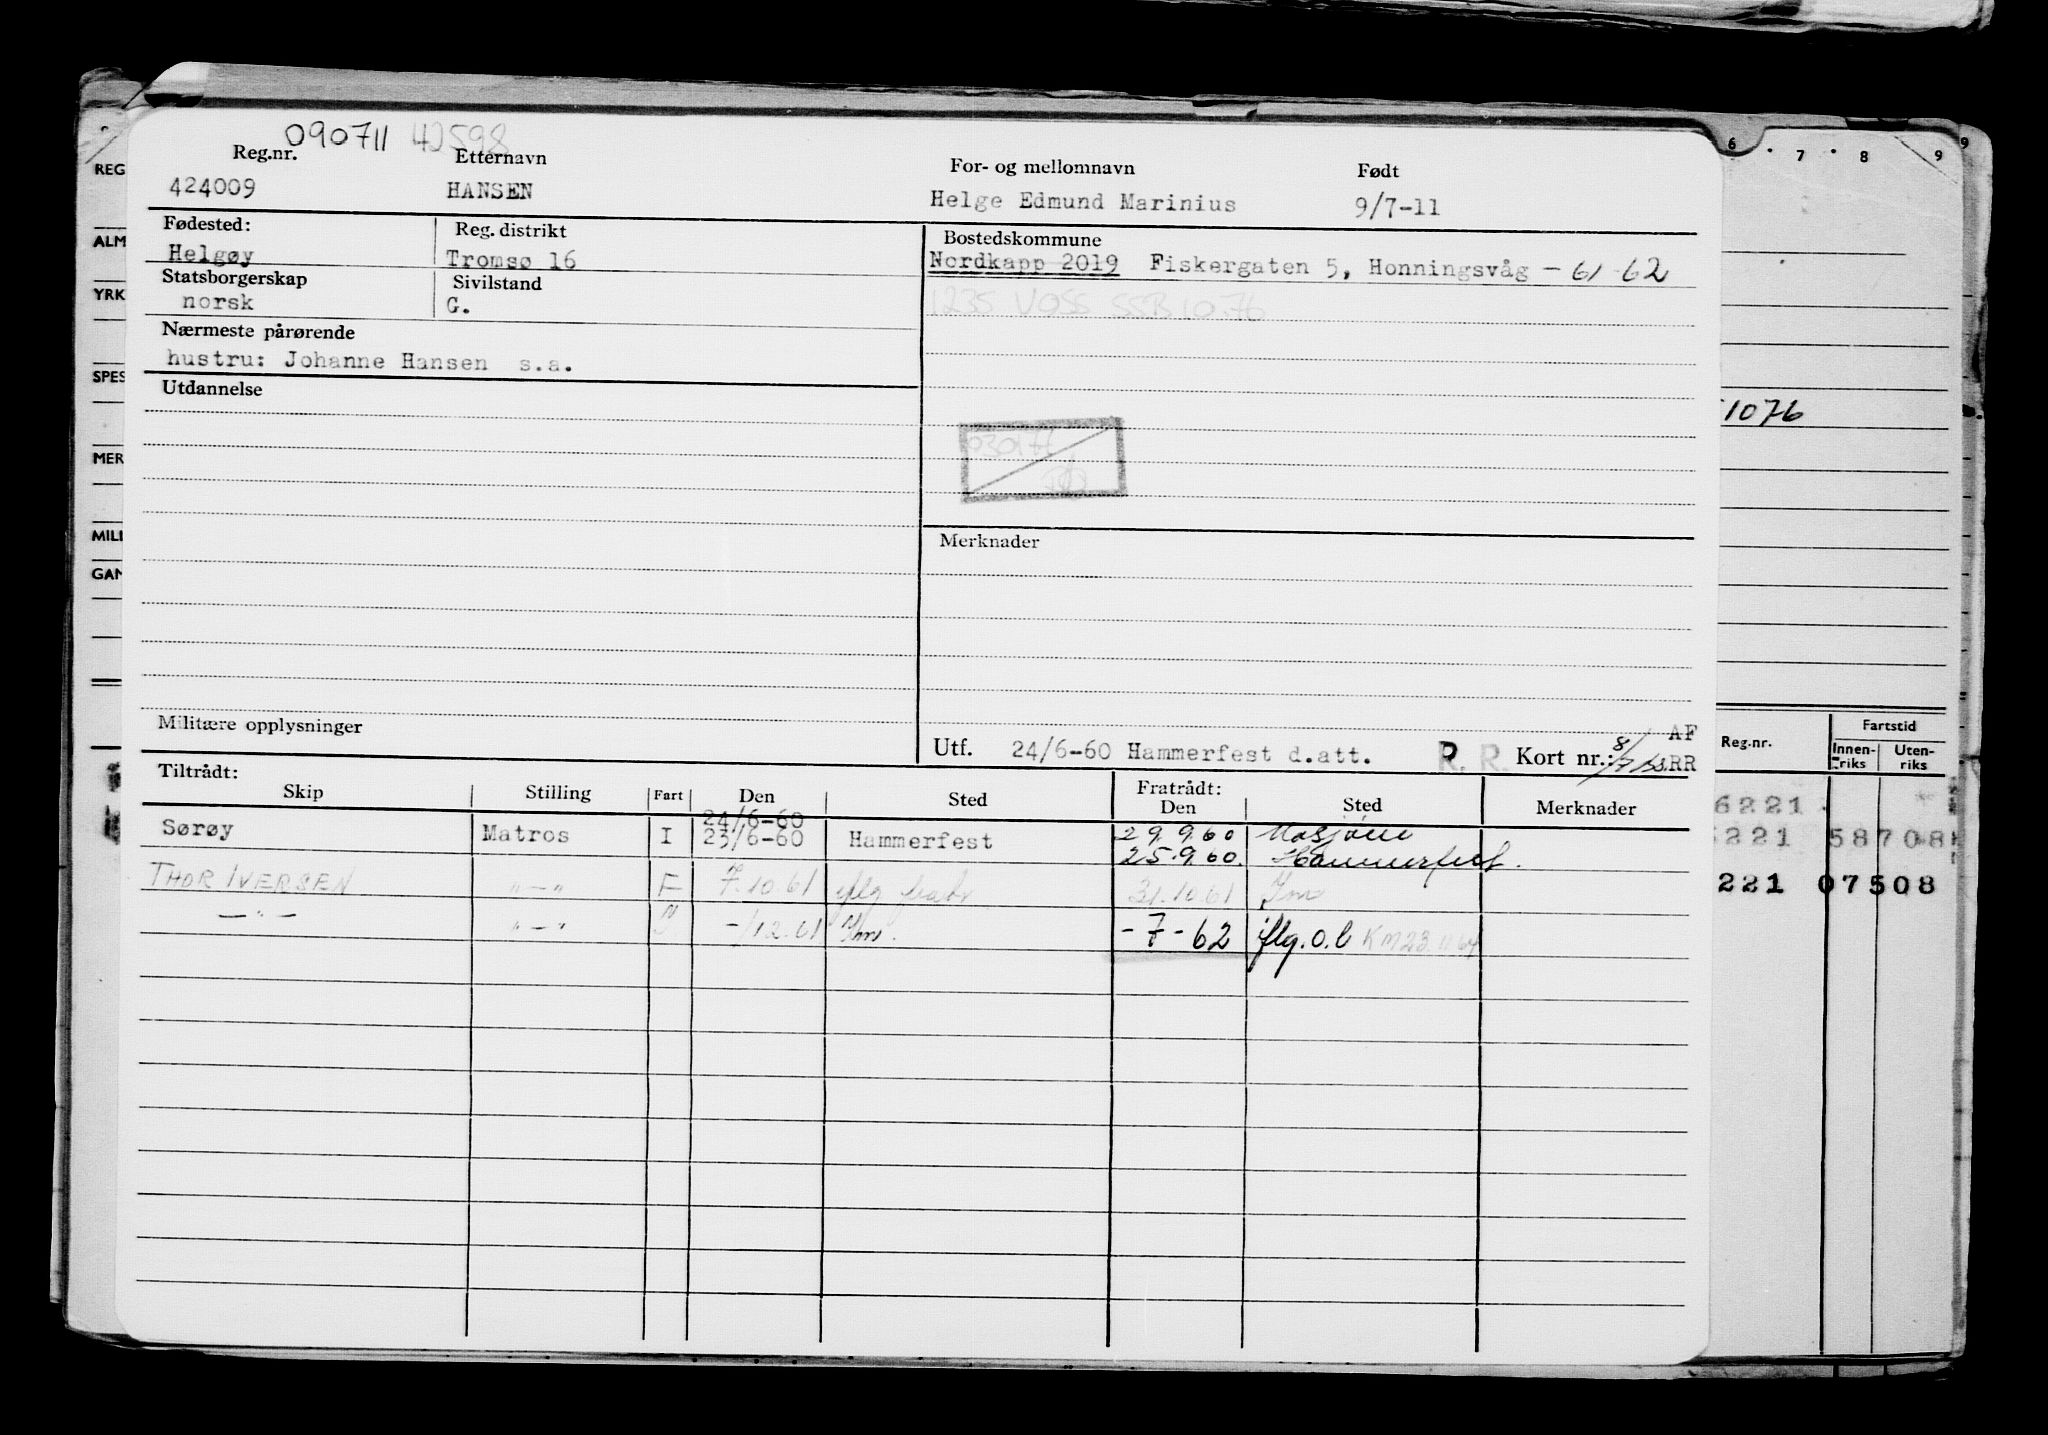 090711 42598
Reg.nr. Etternavn For- og mellomnavn Født
424009 HANSEN Helge Edmund Marinius 9/7-11
Fødested: Reg. distrikt Bostedskommune
Helgøy Tromsø 16 Nordkapp 2019 Fiskergaten 5, Honningsvåg - 61 62
Statsborgerskap Sivilstand
norsk G. 1235 VOSS SSB 10.76
Nærmeste pårørende
hustru: Johanne Hansen s.a.
Utdannelse
030177
Merknader
Militære opplysninger
Utf. 24/6-60 Hammerfest d.att. R. R. Kort nr.: AF
RR
Tiltrådt: Fratrådt:
Skip Stilling Fart Den Sted Den Sted Merknader
24/6-60
Sørøy Matros I 23/6-60 Hammerfest 29.9.60 Mosjøen
25.9.60. Hammerfest.
THOR IVERSEN "-" F 7.10.61 iflg fradr 31.10.61 Jm
-"- "-" -/12.61 -7-62 iflg. o.l KM 23.11 64
REG
ALM
YRK
SPES
MER
MILI
GAN
6 7 8 9
1076
Reg.nr. Fartstid
Innen-riks Uten-riks
6221
221 58708
221 07508